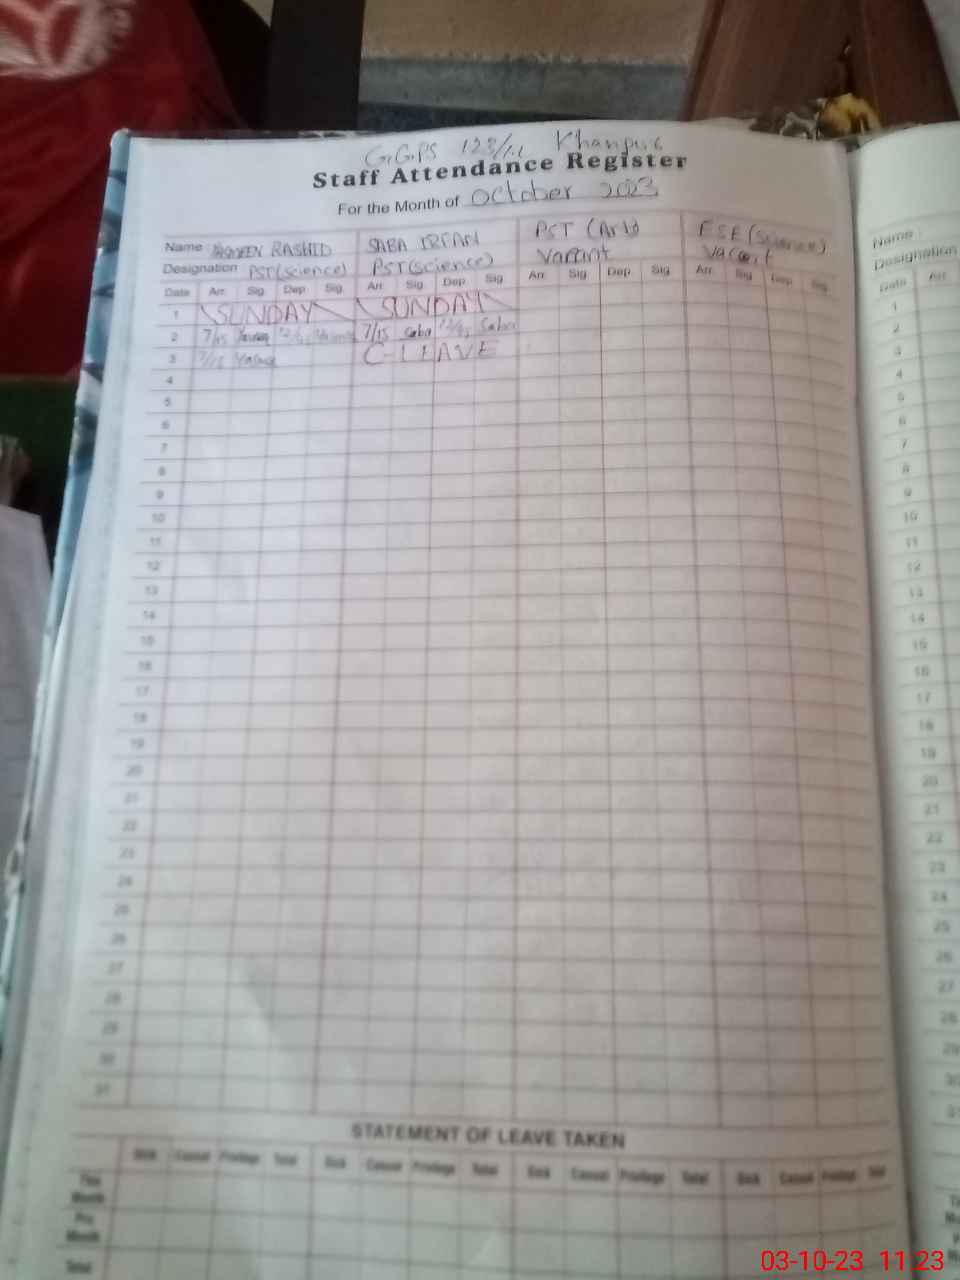 G.G.P.S 123/1.L Khanpur
Staff Attendance Register
For the Month of October 2023
Name YASMEEN RASHID SABA IRFAN PST (Arts) ESE (Science)
Designation PST(science) PST(science) Vacant Vacant
Date Arr. Sig. Dep. Sig. Arr. Sig. Dep. Sig. Arr. Sig. Dep. Sig. Arr. Sig. Dep. Sig.
1 SUNDAY SUNDAY
2 7/15 7/15 Saba Saba
3 7/15 C-LEAVE
4
5
6
7
8
9
10
11
12
13
14
15
16
17
18
19
20
21
22
23
24
25
26
27
28
29
30
31
STATEMENT OF LEAVE TAKEN
Sick Casual Privilege Total Sick Casual Privilege Total Sick Casual Privilege Total Sick Casual Privilege Total
This Month
Pre Month
Total
Name
Designation
Date Arr.
1
2
3
4
5
6
7
8
9
10
11
12
13
14
15
16
17
18
19
20
21
22
23
24
25
26
27
28
29
30
31
03-10-23 11:23